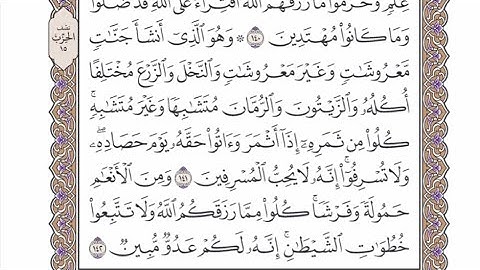 عِلْمٍ وَحَرَّمُوا۟ مَا رَزَقَهُمُ ٱللَّهُ ٱفْتِرَآءً عَلَى ٱللَّهِ قَدْ ضَلُّوا۟
وَمَا كَانُوا۟ مُهْتَدِينَ ١٤٠ ۞ وَهُوَ ٱلَّذِىٓ أَنشَأَ جَنَّٰتٍ
مَّعْرُوشَٰتٍ وَغَيْرَ مَعْرُوشَٰتٍ وَٱلنَّخْلَ وَٱلزَّرْعَ مُخْتَلِفًا
أُكُلُهُۥ وَٱلزَّيْتُونَ وَٱلرُّمَّانَ مُتَشَٰبِهًا وَغَيْرَ مُتَشَٰبِهٍ ۚ
كُلُوا۟ مِن ثَمَرِهِۦٓ إِذَآ أَثْمَرَ وَءَاتُوا۟ حَقَّهُۥ يَوْمَ حَصَادِهِۦ ۖ
وَلَا تُسْرِفُوٓا۟ ۚ إِنَّهُۥ لَا يُحِبُّ ٱلْمُسْرِفِينَ ١٤١ وَمِنَ ٱلْأَنْعَٰمِ
حَمُولَةً وَفَرْشًا ۚ كُلُوا۟ مِمَّا رَزَقَكُمُ ٱللَّهُ وَلَا تَتَّبِعُوا۟
خُطُوَٰتِ ٱلشَّيْطَٰنِ ۚ إِنَّهُۥ لَكُمْ عَدُوٌّ مُّبِينٌ ١٤٢
نصف
الحزب
١٥